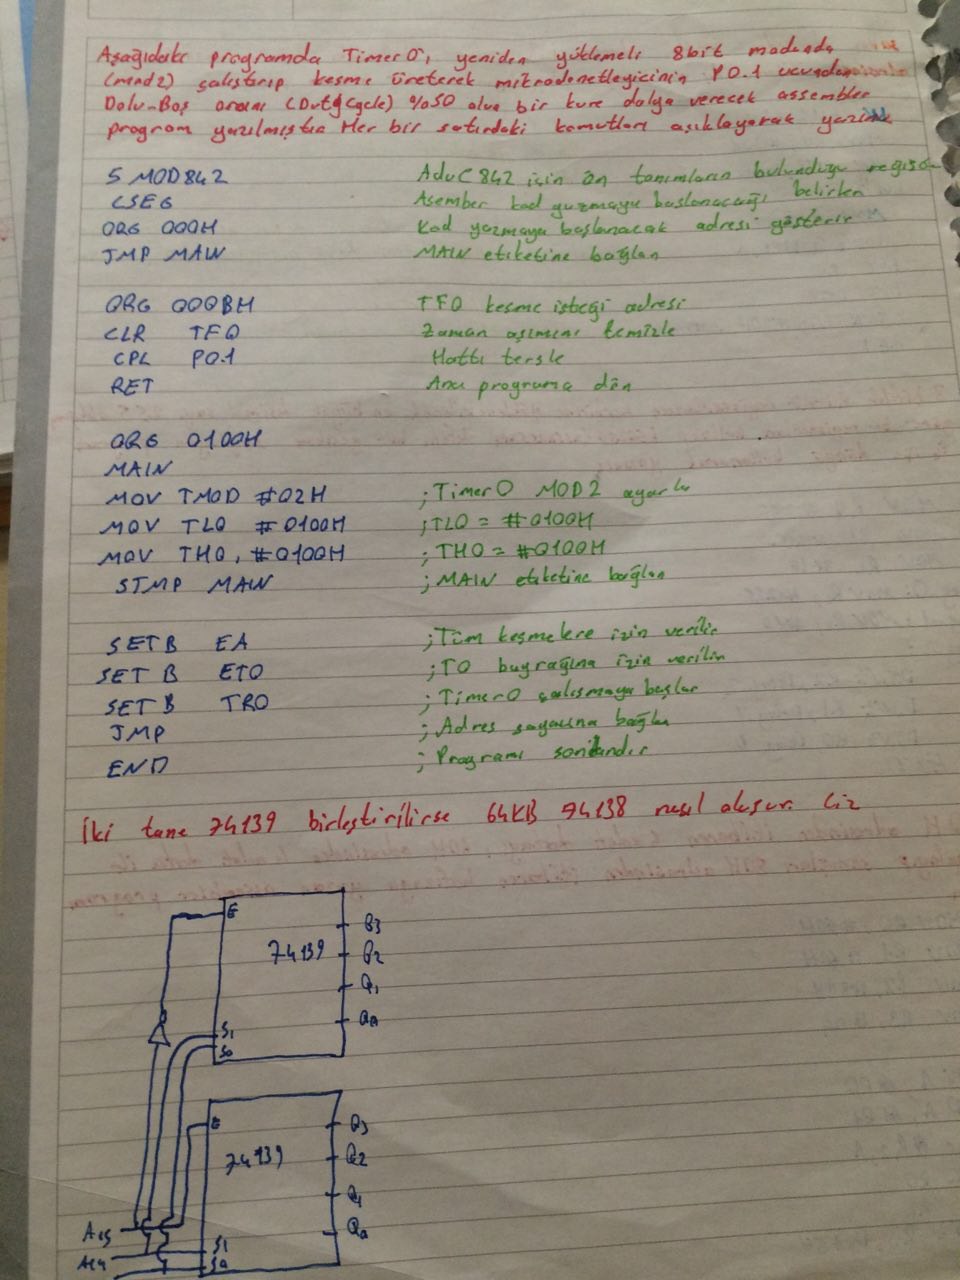 Aşağıdaki programda Timer0'ı, yeniden yüklemeli 8bit modunda
(mod2) çalıştırıp kesme üreterek mikrodenetleyicinin P0.1 ucundan
Dolu-Boş oranı (Duty Cycle) %50 olan bir kare dalga verecek assembler
program yazılmıştır Her bir satırdaki komutları açıklayarak yazınız
$ MOD842 AduC842 için ön tanımların bulunduğu
CSEG Asember kod yazmaya başlanacağı belirten
ORG 000H Kod yazmaya başlanacak adresi gösterir
JMP MAIN MAIN etiketine bağlan
ORG 000BH TF0 kesme isteği adresi
CLR TF0 Zaman aşımını temizle
CPL P0.1 Hattı tersle
RET Ana programa dön
ORG 0100H
MAIN
MOV TMOD #02H ;Timer0 MOD2 ayarla
MOV TL0 #0100H ;TL0 = #0100H
MOV TH0, #0100H ;TH0 = #0100H
SJMP MAIN ;MAIN etiketine bağlan
SETB EA ;Tüm kesmelere izin verilir
SET B ET0 ;T0 bayrağına izin verilir
SET B TR0 ;Timer0 çalışmaya başlar
JMP ;Adres sayacına bağlan
END ;Programı sonlandır
İki tane 74139 birleştirilirse 64KB 74138 nasıl oluşur. Çiz
E
74139
Q3
Q2
Q1
Q0
S1
S0
E
74139
Q3
Q2
Q1
Q0
A15
A14
S1
S0